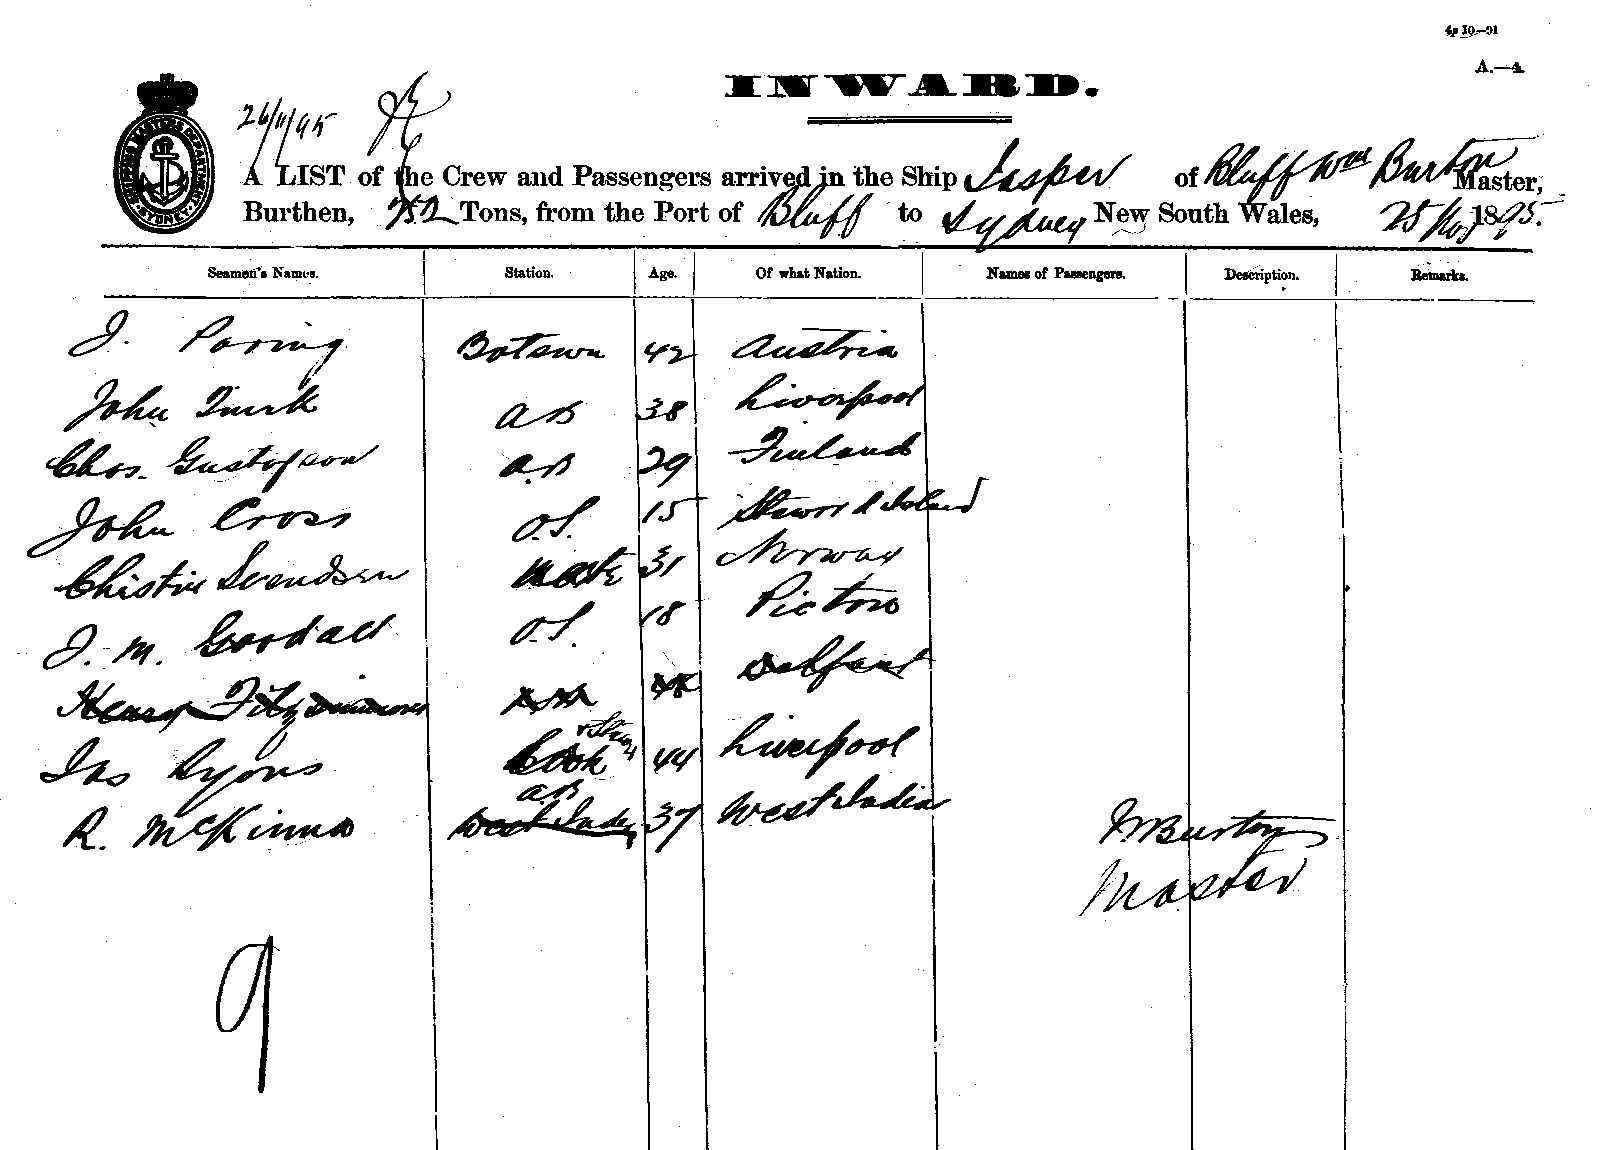 4p 10—91
A.—4
INWARD.
26/11/95
SHIPPING MASTERS DEPARTMENT SYDNEY
A LIST of the Crew and Passengers arrived in the Ship Jasper of Bluff Wm Burton Master,
Burthen, 252 Tons, from the Port of Bluff to Sydney New South Wales, 25 Nov 1895.
Seamen's Names. Station. Age. Of what Nation. Names of Passengers. Description. Remarks.
J. Paring Botswn 42 Austria
John Turk AB 38 Liverpool
Chas. Gustafson AB 29 Finland
John Cross O.S. 15 Steward Island
Christin Svendsen Mate 31 Norway
J. M. Goodall O.S. 18 Picton
Henry Fitzsimmons Belfast
Jas Lyons Cook 44 Liverpool
AB
R. McKinna West Indies 37 West India
W Burton
Master
9